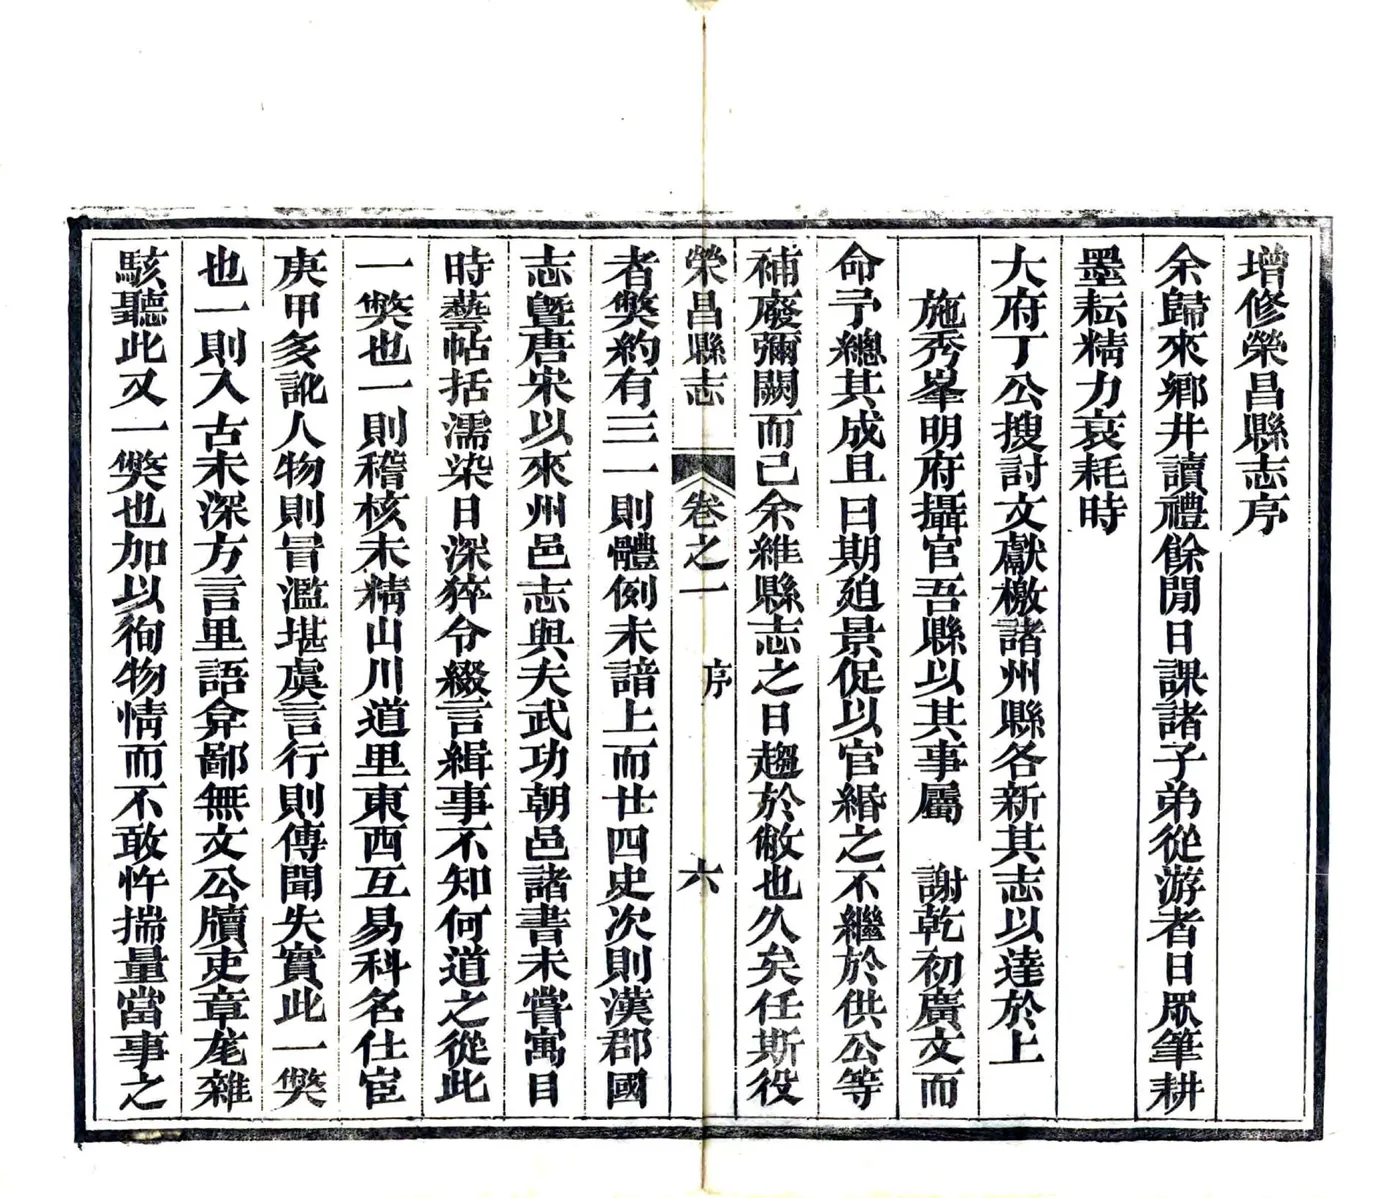 增修榮昌縣志序
余歸來鄉井讀禮餘閒日課諸子弟從游者日眾筆耕
墨耘精力衰耗時
大府丁公搜討文獻檄諸州縣各新其志以達於上
施秀峯明府攝官吾縣以其事屬 謝乾初廣文而
命予總其成且曰期廹景促以官緡之不繼於供公等
補廢彌闕而已余維縣志之日趨於敝也久矣任斯役
榮昌縣志 卷之一 序 六
者獘約有三一則體例未諳上而廿四史次則漢郡國
志曁唐宋以來州邑志與夫武功朝邑諸書未嘗寓目
時藝帖括濡染日深猝令綴言緝事不知何道之從此
一獘也一則稽核未精山川道里東西互易科名仕宦
庚甲多訛人物則冒濫堪虞言行則傳聞失實此一獘
也一則入古未深方言里語弇鄙無文公牘吏章尨雜
駭聽此又一獘也加以徇物情而不敢忤揣量當事之